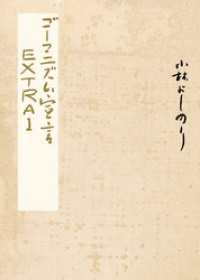 ゴーマニズム宣言
EXTRA1
小林よしのり